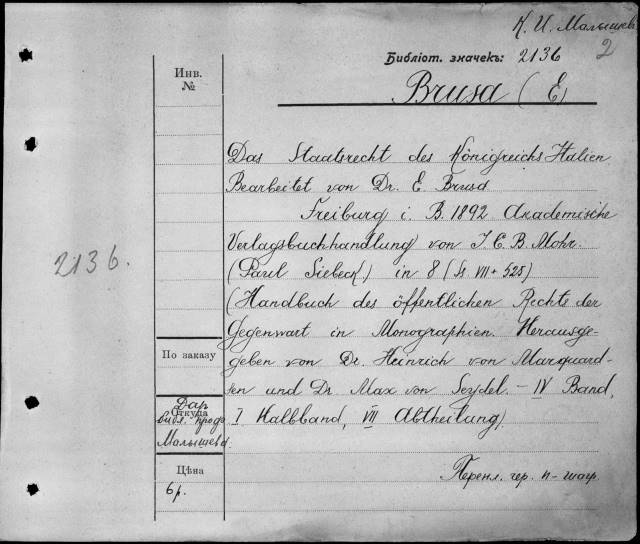 К. И. Малышев
2
Библіот. значекъ: 2136
Brusa (E)
Инв.
№
Das Staatsrecht des Königreichs Italien.
Bearbeitet von Dr. E. Brusa
Freiburg i. B. 1892 Akademische
Verlagsbuchhandlung von J. C. B. Mohr.
(Paul Siebeck) in 8 (Ss. VII + 525)
2136.
(Handbuch des öffentlichen Rechts der
Gegenwart in Monographien. Herausge-
По заказу
geben von Dr. Heinrich von Marquard-
sen und Dr. Max von Seydel. – IV Band,
Откуда
Дар
библ. проф.
Малышева.
I Halbband, VII Abtheilung)
Цѣна
6 р.
Перепл. чер. п-шагр.